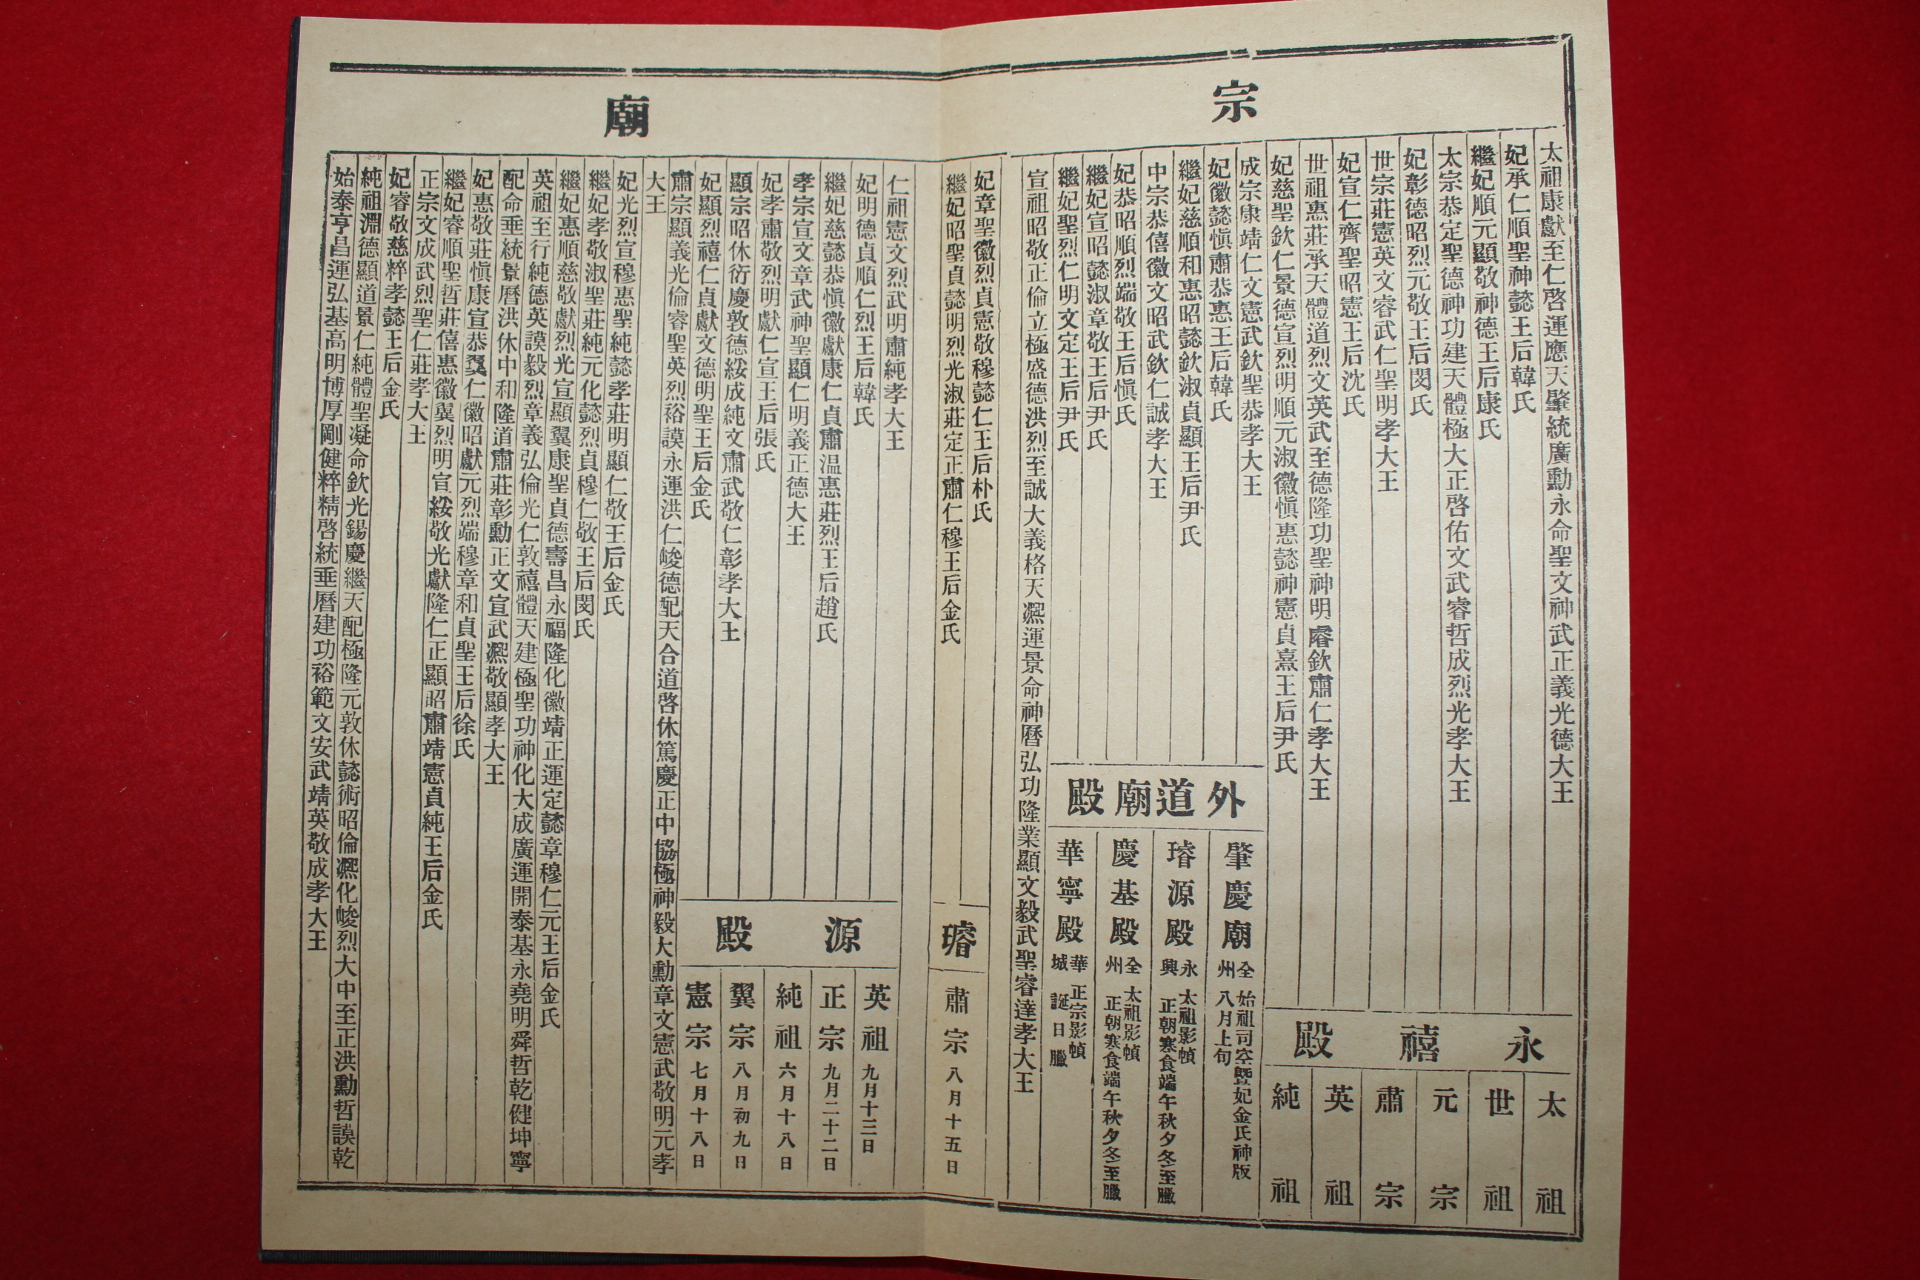 宗廟
太祖康獻至仁啓運應天肇統廣勳永命聖文神武正義光德大王
妃承仁順聖神懿王后韓氏
繼妃順元顯敬神德王后康氏
太宗恭定聖德神功建天體極大正啓佑文武睿哲成烈光孝大王
妃彰德昭烈元敬王后閔氏
世宗莊憲英文睿武仁聖明孝大王
妃宣仁齊聖昭憲王后沈氏
世祖惠莊承天體道烈文英武至德隆功聖神明睿欽肅仁孝大王
妃慈聖欽仁景德宣烈明順元淑徽愼惠懿神憲貞熹王后尹氏
成宗康靖仁文憲武欽聖恭孝大王
妃徽懿愼肅恭惠王后韓氏
繼妃慈順和惠昭懿欽淑貞顯王后尹氏
中宗恭僖徽文昭武欽仁誠孝大王
妃恭昭順烈端敬王后愼氏
繼妃宣昭懿淑章敬王后尹氏
繼妃聖烈仁明文定王后尹氏
宣祖昭敬正倫立極盛德洪烈至誠大義格天凞運景命神曆弘功隆業顯文毅武聖睿達孝大王
妃章聖徽烈貞憲敬穆懿仁王后朴氏
繼妃昭聖貞懿明烈光淑莊定正肅仁穆王后金氏
仁祖憲文烈武明肅純孝大王
妃明德貞順仁烈王后韓氏
繼妃慈懿恭愼徽獻康仁貞肅温惠莊烈王后趙氏
孝宗宣文章武神聖顯仁明義正德大王
妃孝肅敬烈明獻仁宣王后張氏
顯宗昭休衍慶敦德綏成純文肅武敬仁彰孝大王
妃顯烈禧仁貞獻文德明聖王后金氏
肅宗顯義光倫睿聖英烈裕謨永運洪仁峻德配天合道啓休篤慶正中協極神毅大勳章文憲武敬明元孝
大王
妃光烈宣穆惠聖純懿孝莊明顯仁敬王后金氏
繼妃孝敬淑聖莊純元化懿烈貞穆仁敬王后閔氏
繼妃惠順慈敬獻烈光宣顯翼康聖貞德壽昌永福隆化徽靖正運定懿章穆仁元王后金氏
英祖至行純德英謨毅烈章義弘倫光仁敦禧體天建極聖功神化大成廣運開泰基永堯明舜哲乾健坤寧
配命垂統景曆洪休中和隆道肅莊彰勳正文宣武凞敬顯孝大王
妃惠敬莊愼康宣恭翼仁徽昭獻元烈端穆章和貞聖王后徐氏
繼妃睿順聖哲莊僖惠徽翼烈明宣綏敬光獻隆仁正顯昭肅靖憲貞純王后金氏
正宗文成武烈聖仁莊孝大王
妃睿敬慈粹孝懿王后金氏
純祖淵德顯道景仁純體聖凝命欽光錫慶繼天配極隆元敦休懿術昭倫凞化峻烈大中至正洪勳哲謨乾
始泰亨昌運弘基高明博厚剛健粹精啓統垂曆建功裕範文安武靖英敬成孝大王
外道廟殿
肇慶廟 全州 始祖司空曁妃金氏神版 八月上旬
璿源殿 永興 太祖影幀 正朝寒食端午秋夕冬至臘
慶基殿 全州 太祖影幀 正朝寒食端午秋夕冬至臘
華寧殿 華城 正宗影幀 誕日臘
永禧殿
太祖
世祖
元宗
肅宗
英祖
純祖
璿源殿
肅宗 八月十五日
英祖 九月十三日
正宗 九月二十二日
純祖 六月十八日
翼宗 八月初九日
憲宗 七月十八日